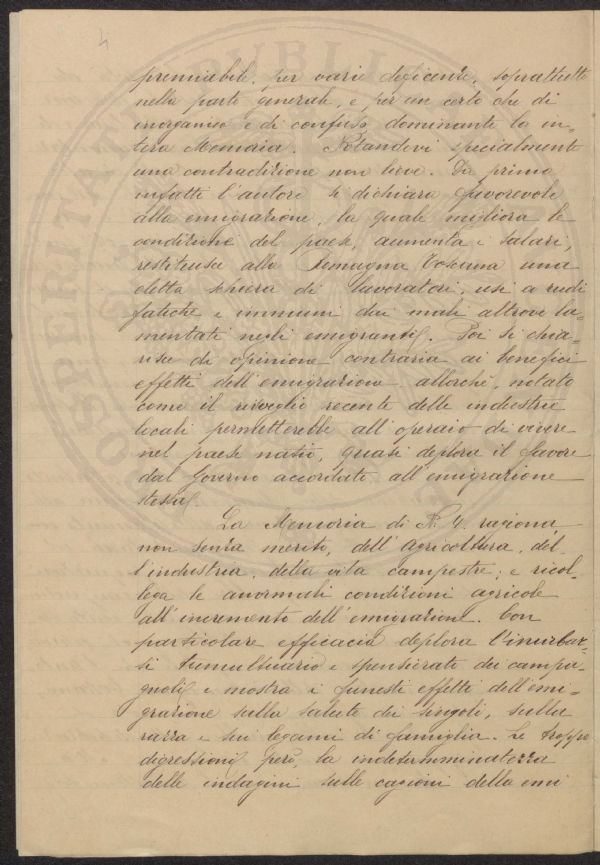 4
premiabile, per varie deficenze, soprattutto
nella parte generale, e per un certo che di
inorganico e di confuso dominante la in-
tera Memoria. Notandovi specialmente
una contradizione non lieve. Da prima
infatti l'autore si dichiara favorevole
alla emigrazione, la quale migliora le
condizioni del paese, aumenta i salari,
restituisce alla Romagna Toscana una
eletta schiera di lavoratori, usi a rudi
fatiche e immuni dai mali altrove la-
mentati negli emigranti. Poi si chia-
risce di opinione contraria ai benefici
effetti dell'emigrazione allorchè, notato
come il risveglio recente delle industrie
locali permetterebbe all'operaio di vivere
nel paese natio, quasi deplora il favore
dal Governo accordato all'emigrazione
stessa.
La Memoria di N. 4. ragiona,
non senza merito, dell'agricoltura, del-
l'industria, della vita campestre; e ricol-
lega le anormali condizioni agricole
all'incremento dell'emigrazione. Con
particolare efficacia deplora l'inurbar-
si tumultuario e spensierato dei campa-
gnoli e mostra i funesti effetti dell'emi-
grazione sulla salute dei singoli, sulla
razza e sui legami di famiglia. Le troppe
digressioni però, la indeterminatezza
delle indagini sulle cagioni della emi